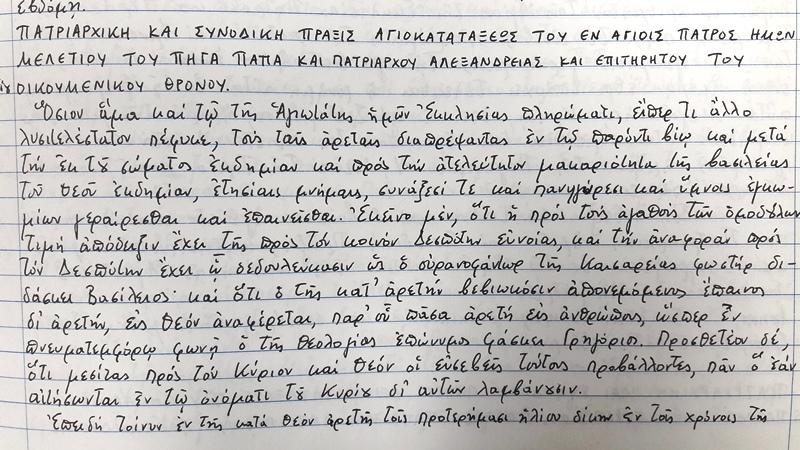 ἑβδόμῃ.
ΠΑΤΡΙΑΡΧΙΚΗ ΚΑΙ ΣΥΝΟΔΙΚΗ ΠΡΑΞΙΣ ΑΓΙΟΚΑΤΑΤΑΞΕΩΣ ΤΟΥ ΕΝ ΑΓΙΟΙΣ ΠΑΤΡΟΣ ΗΜΩΝ
ΜΕΛΕΤΙΟΥ ΤΟΥ ΠΗΓΑ ΠΑΠΑ ΚΑΙ ΠΑΤΡΙΑΡΧΟΥ ΑΛΕΞΑΝΔΡΕΙΑΣ ΚΑΙ ΕΠΙΤΗΡΗΤΟΥ ΤΟΥ
ΟΙΚΟΥΜΕΝΙΚΟΥ ΘΡΟΝΟΥ.
Ὅσιον ἅμα καί τῷ τῆς Ἁγιωτάτης ἡμῶν Ἐκκλησίας πληρώματι, εἴπερ τι ἄλλο
λυσιτελέστατον πέφυκε, τούς ταῖς ἀρεταῖς διαπρέψαντας ἐν τῷ παρόντι βίῳ καί μετά
τήν ἐκ τοῦ σώματος ἐκδημίαν καί πρός τήν ἀτελεύτητον μακαριότητα τῆς βασιλείας
τοῦ Θεοῦ ἐκδημίαν, ἐτησίαις μνήμαις, συνάξεσί τε καί πανηγύρεσι καί ὕμνοις ἐγκω-
μίων γεραίρεσθαι καί ἐπαινεῖσθαι. Ἐκεῖνο μέν, ὅτι ἡ πρός τούς ἀγαθούς τῶν ὁμοδούλων
τιμή ἀπόδειξιν ἔχει τῆς πρός τόν κοινόν Δεσπότην εὐνοίας, καί τήν ἀναφοράν πρός
τόν Δεσπότην ἔχει ᾧ δεδουλεύκασιν ὡς ὁ οὐρανοφάντωρ τῆς Καισαρείας φωστήρ δι-
δάσκει Βασίλειος· καί ὅτι ὁ τῆς κατ' ἀρετήν βεβιωκόσιν ἀπονεμόμενος ἔπαινος
δι' ἀρετήν, εἰς Θεόν ἀναφέρεται, παρ' οὗ πᾶσα ἀρετή εἰς ἀνθρώπους, ὥσπερ ἐν
πνευματεμφόρῳ φωνῇ ὁ τῆς θεολογίας ἐπώνυμος φάσκει Γρηγόριος. Προσθετέον δέ,
ὅτι μεσίτας πρός τόν Κύριον καί Θεόν οἱ εὐσεβεῖς τούτους προβάλλοντες, πᾶν ὅ ἐάν
αἰτήσωνται ἐν τῷ ὀνόματι τοῦ Κυρίου δι' αὐτῶν λαμβάνουσιν.
Ἐπειδή τοίνυν ἐν τῆς κατά Θεόν ἀρετῆς τοῖς προτερήμασι ἡλίου δίκην ἐν τοῖς χρόνοις τῆς